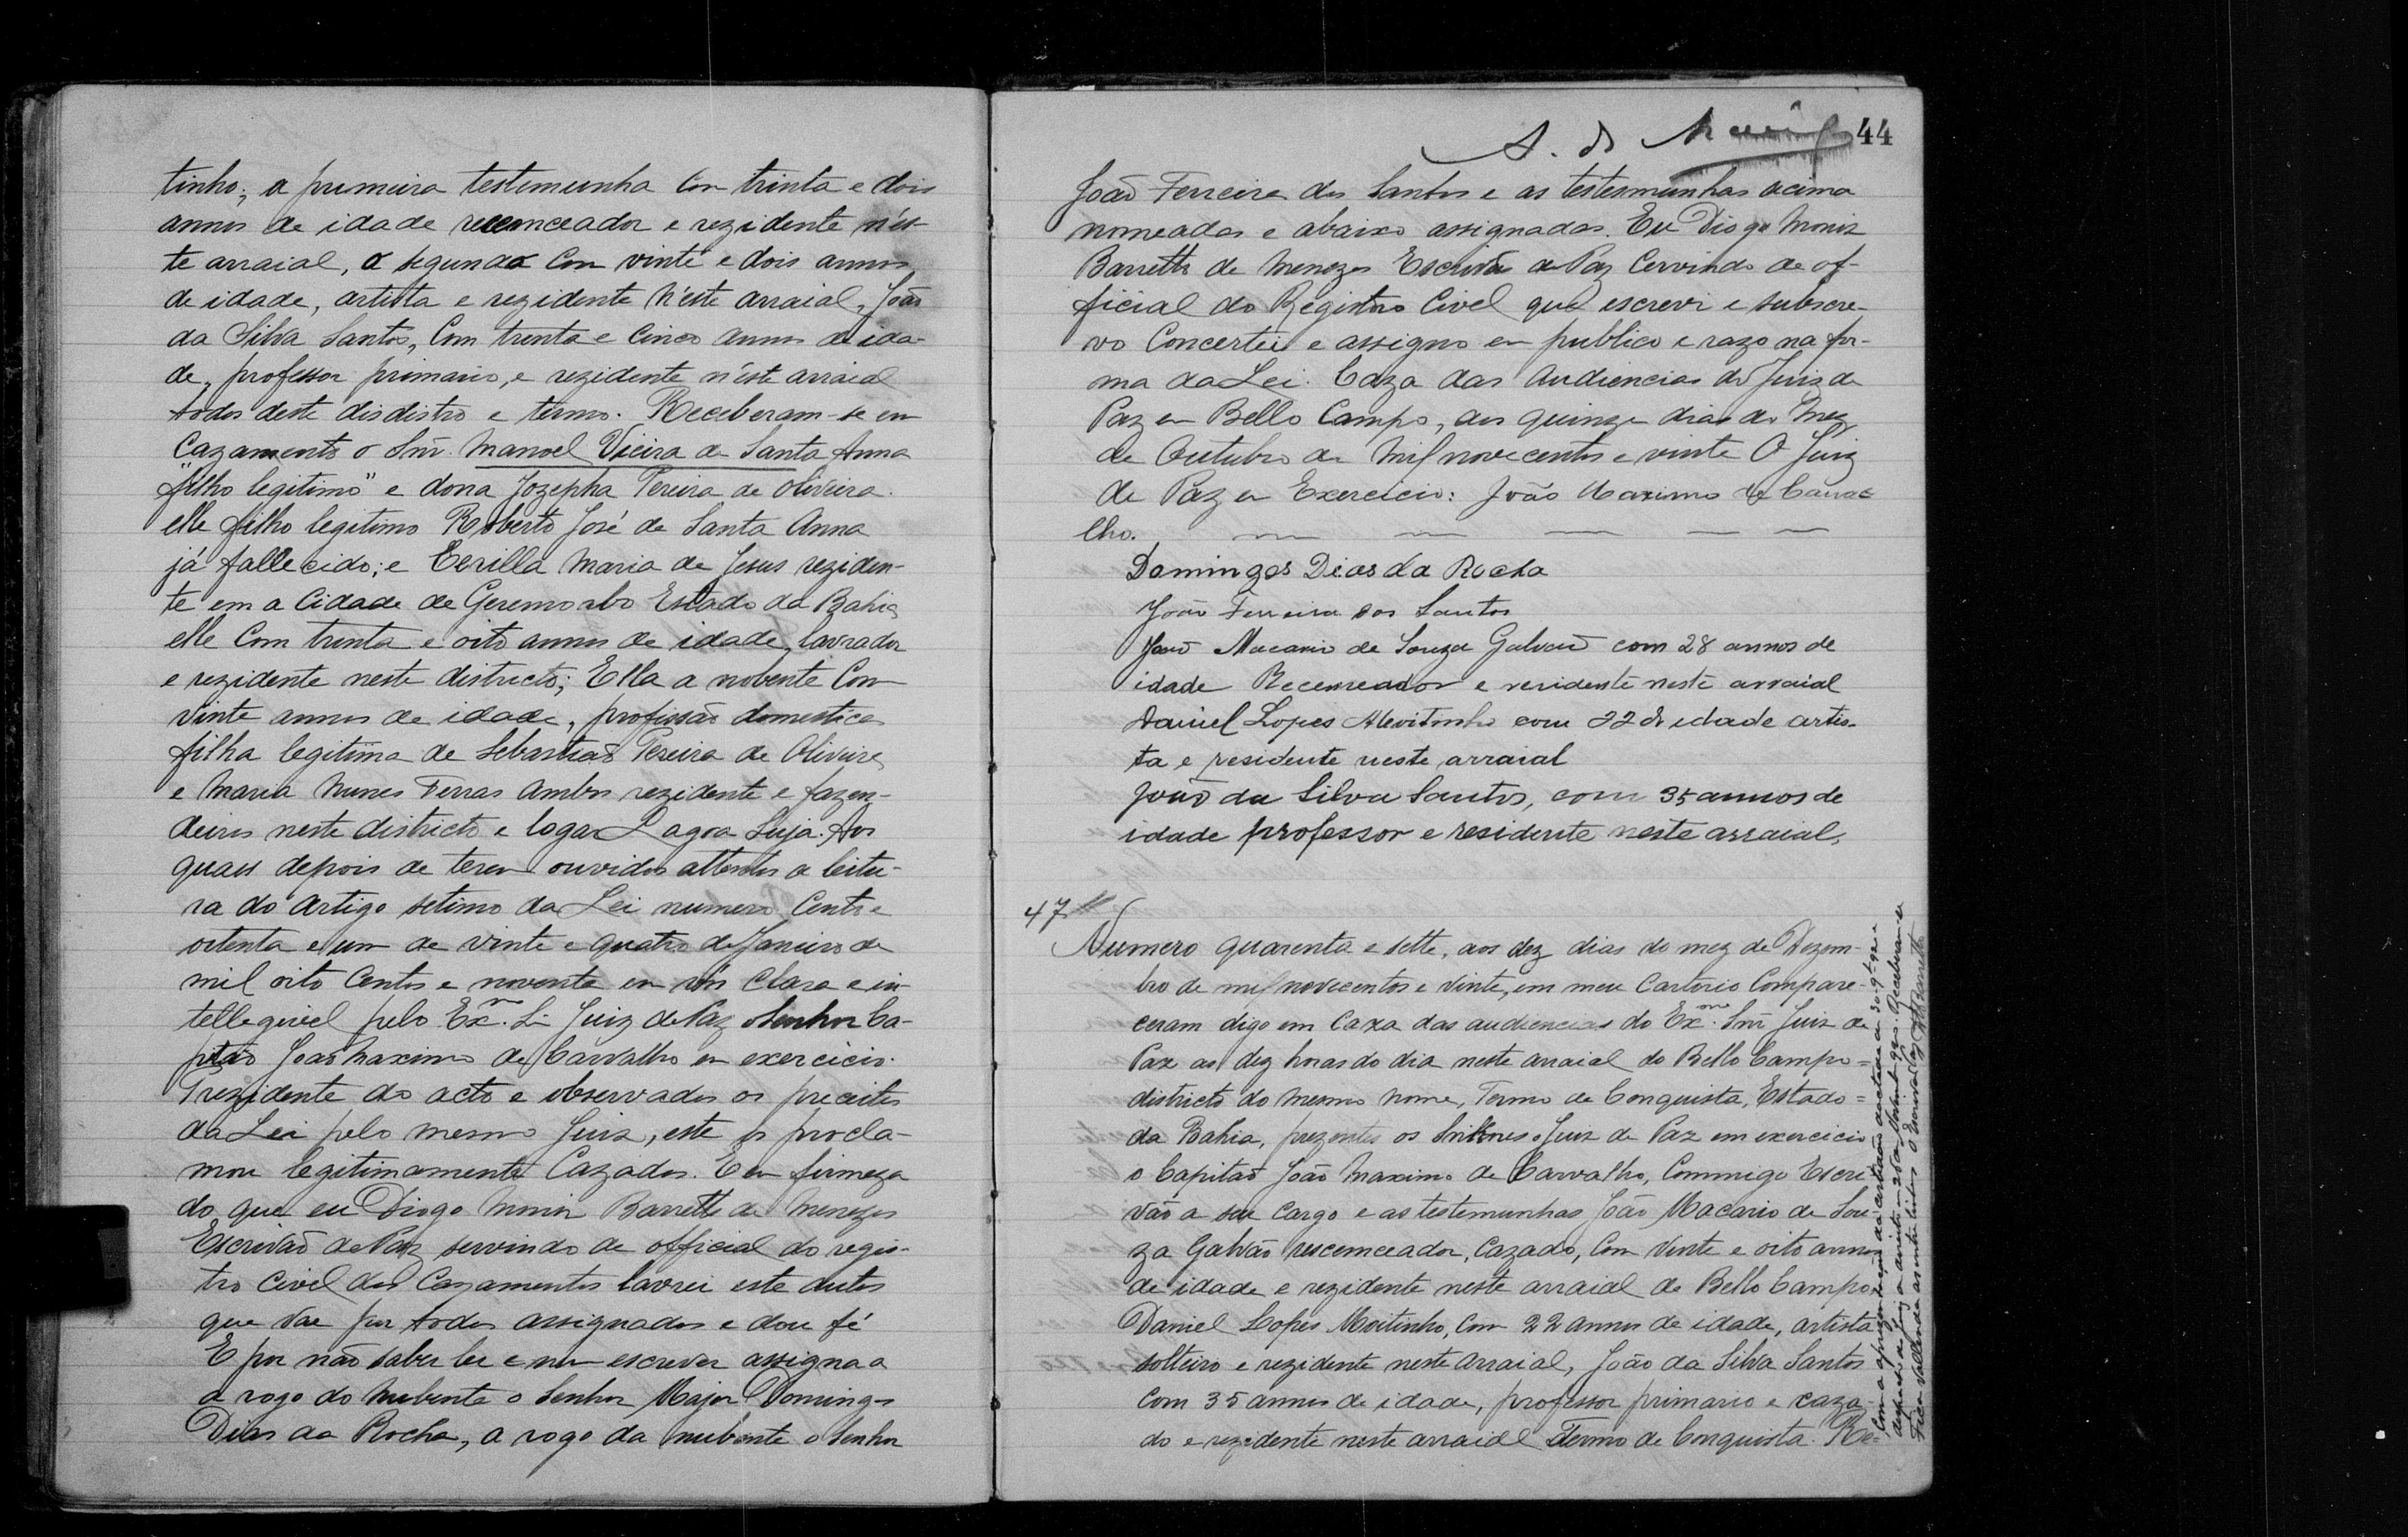 tinho; a primeira testemunha Com trinta e dois
annos de idade recemceador e rezidente n'es-
te arraial, a segunda Com vinte e dois annos
de idade, artista e rezidente n'este arraial, João
da Silva Santos, Com trenta e Cinco annos de ida-
de, professor primario, e rezidente n'este arraial
todos deste disdistro e termo. Receberam-se em
Cazamento o Snr. Manoel Vieira de Santa Anna
"filho legitimo" e dona Jozepha Pereira de Oliveira.
elle filho legitimo Roberto José de Santa Anna
já fallecido; e Cerilla Maria de Jesus reziden-
te em a Cidade de Geremoabo Estado da Bahia
elle Com trenta e oito annos de idade, lavrador
e rezidente neste districto; Ella a nobente Com
vinte annos de idade, profissão domestica
filha legitima de Sebastião Pereira de Oliveira
e Maria Nunes Ferras ambos rezidente e fazen-
deiros neste districto e logar Lagoa Suja. Aos
quaes depois de terem ouvidos attentos a leitu-
ra do artigo setimo da Lei numero Cento e
oitenta e um de vinte e quatro de Janeiro de
mil oito Centos e noventa em vós Clara e in-
tellegivel pelo Exmo. Juiz de Paz o Senhor Ca-
pitão João Maximo de Carvalho em exercicio.
Prezidente do acto e observados os preceitos
da Lei pelo mesmo Juiz, este os procla-
mou legitimamente Cazados. E em firmeza
do que eu Diogo Moniz Barretto de Menezes
Escrivão de Paz servindo de official do regis-
tro Civel dos Cazamentos lavrei este autos
que vae por todos assignados e dou fé
E por não saber ler e nem escrever assigna a
a rogo do nubente o Senhor Major Domingos
Dias da Rocha, a rogo da nubente o Senhor
44
João Ferreira dos Santos e as testesmunhas acima
nomeadas e abaixo assignadas. Eu Diogo Moniz
Barretto de Menezes Escrivão de Paz Cervindo de of-
ficial do Registro Civel que escrevi e subscre-
vo Concertei e assigno em publico e razo na for-
ma da Lei. Caza das Audiencias do Juiz de
Paz em Bello Campo, aos quinze dias do Mez
de Outubro de Mil novecentos e vinte O Juiz
de Paz em Exercicio: João Maximo de Carva=
lho.
Domingos Dias da Rocha
João Ferreira dos Santos
João Macario de Souza Galvão com 28 annos de
idade Recenseador e residente neste arraial
Daniel Lopes Moitinho com 22 de idade artis-
ta e residente neste arraial
João da Silva Santos, com 35 annos de
idade professor e residente neste arraial,
47
Numero quarenta e sette, aos dez dias do mez de Dezem-
bro de mil novecentos e vinte, em meu Cartorio Compare-
ceram digo em Caxa das audiencias do Exmo. Snr Juiz de
Paz as dez horas do dia neste arraial do Bello Campo=
districto do mesmo nome, Termo de Conquista, Estado=
da Bahia, prezentes os Senhores Juiz de Paz em exercicio
o Capitão João Maximo de Carvalho, Commigo Escri-
vão a seu Cargo e as testemunhas João Macario de Sou-
za Galvão rescemceador, Cazado, Com Vinte e oito annos
de idade e rezidente neste arraial de Bello Campo,
Daniel Lopes Moitinho, Com 22 annos de idade, artista
solteiro e rezidente neste arraial, João da Silva Santos
Com 35 annos de idade, professor primario e caza-
do e rezidente neste arraial Termo de Conquista. Re=